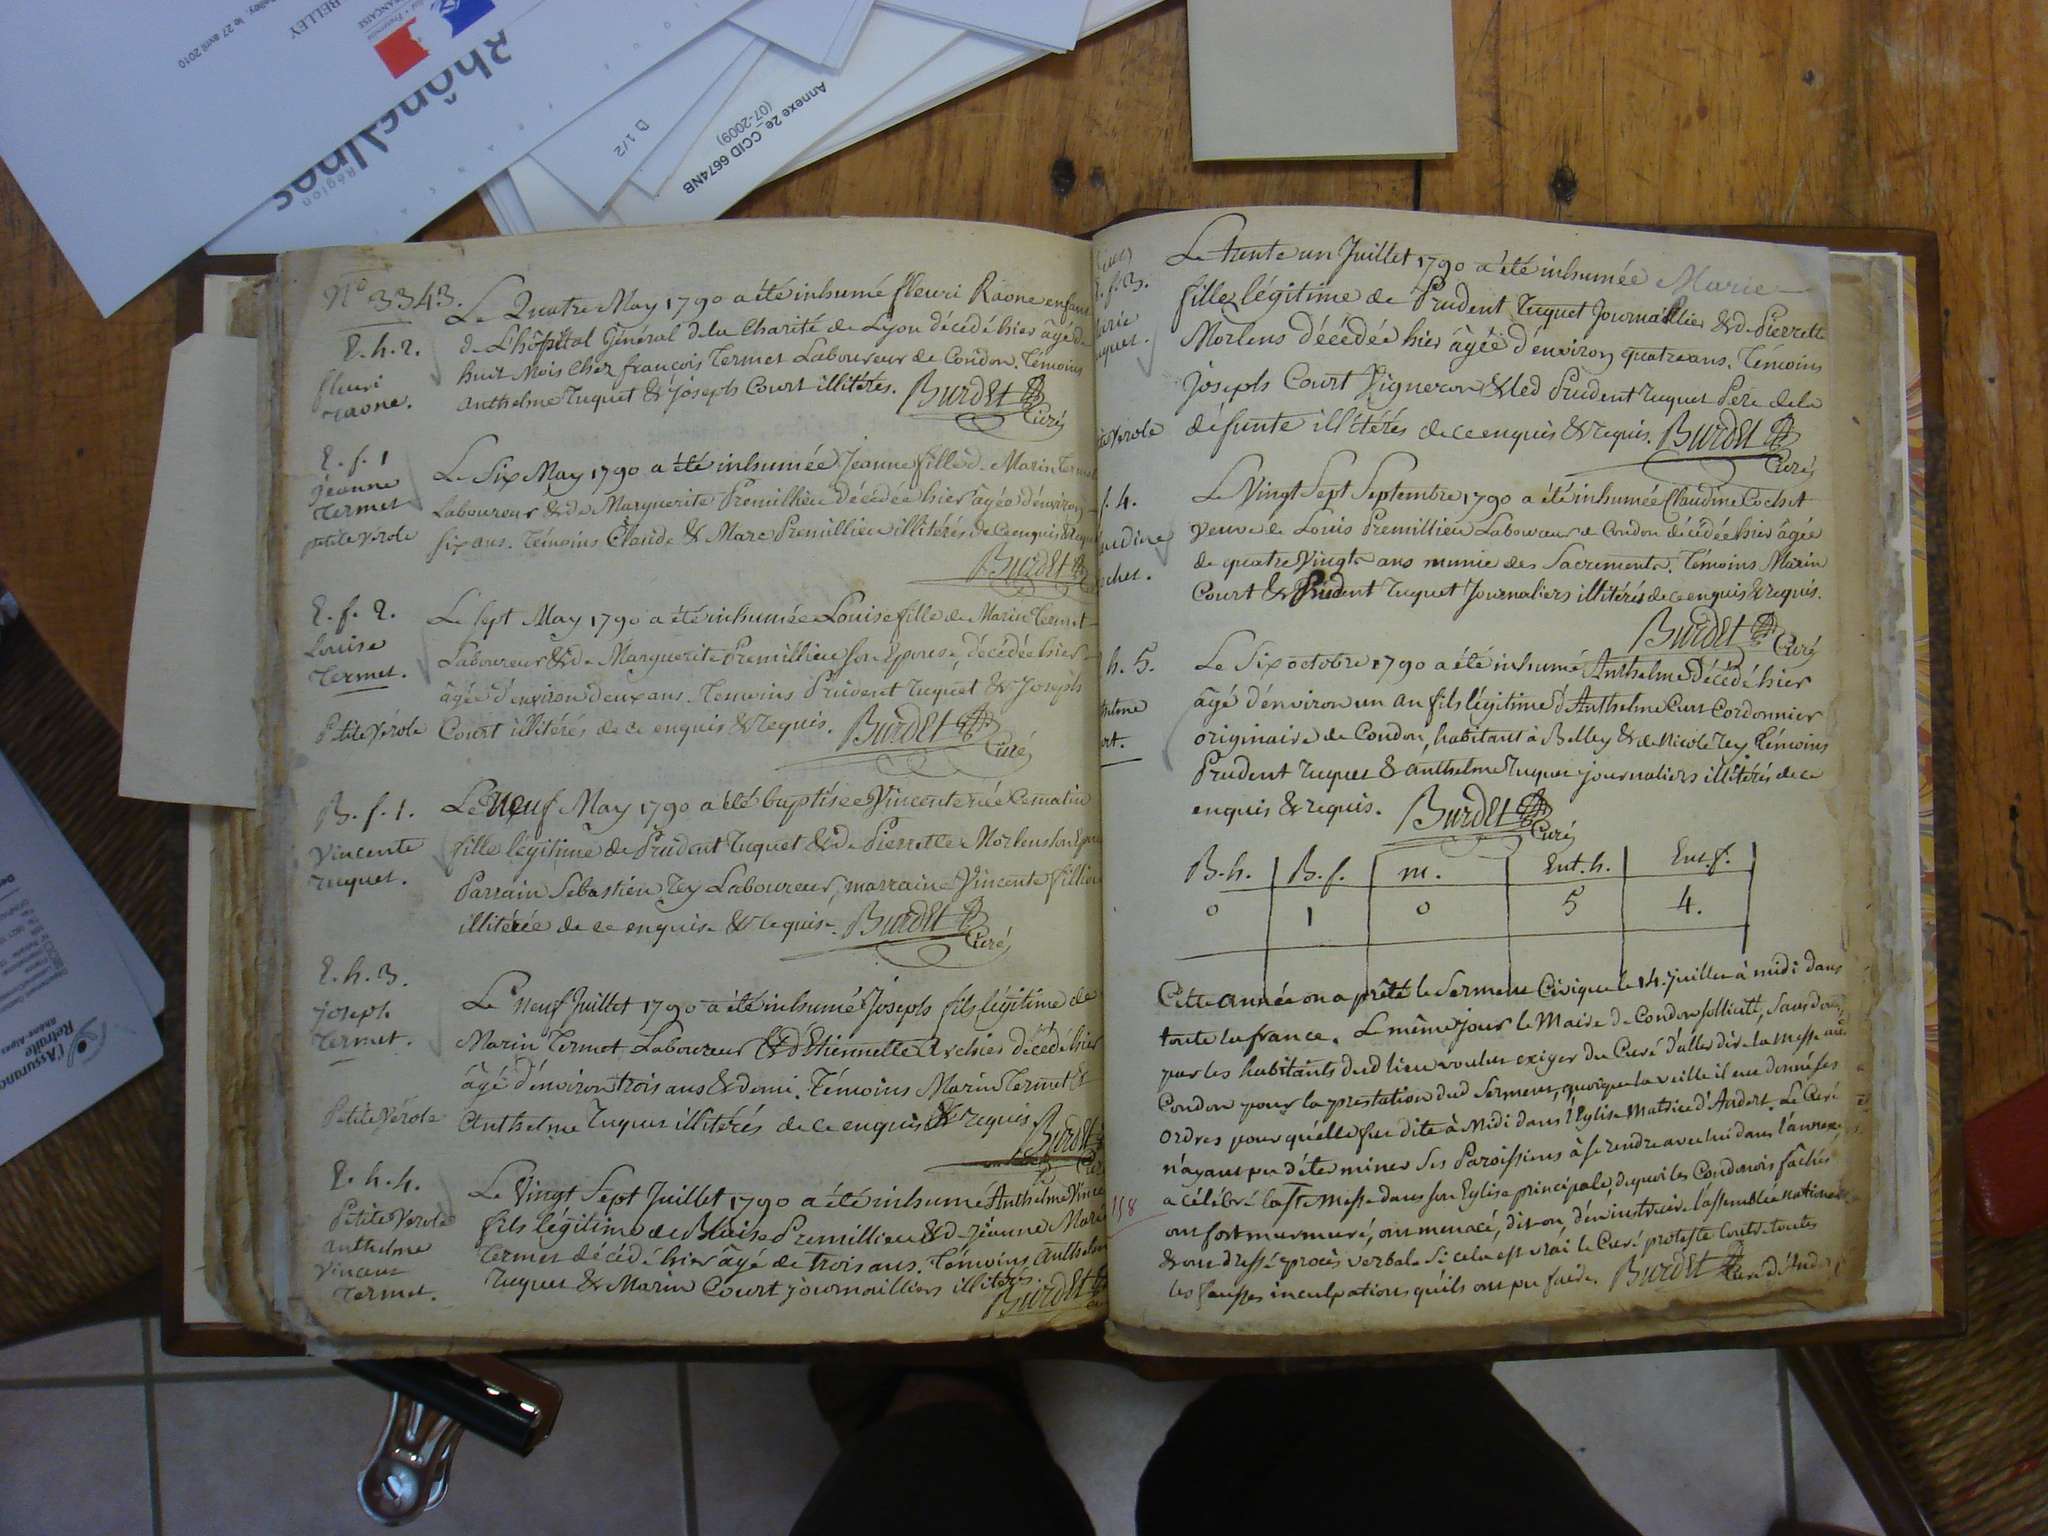 Belley, le 27 avril 2010
BELLEY
FRANÇAISE
Rhône
Région
D 1/2
Annexe 2e_CCID 6674NB
(07-2009)
l'Assurance
Retraite
Rhône-Alpes
N° 3343.
E. h. 2.
fleuri
raone.
Le Quatre May 1790 a été inhumé fleuri Raone enfant
de L'hôpital Général de la Charité de Lyon décédé hier âgé de
huit Mois Chez françois Termet Laboureur de Condon. Témoins
Anthelme Tuquet & Joseph Court illitérés. Burdet
Curé
E. f. 1
Jeanne
Termet
petite vérole
Le Six May 1790 a été inhumée Jeanne fille de Marin Termet
Laboureur & de Marguerite Premillieu décédée hier âgée d'environ
six ans. Témoins Claude & Marc Premillieu illitérés de ce enquis & requis
Burdet
E. f. 2.
Louise
Termet.
Petite Vérole
Le Sept May 1790 a été inhumée Louise fille de Marin Termet
Laboureur & de Marguerite Premillieu son Epouse, décédée hier
âgée d'environ deux ans. Temoins Prudent Tuquet & Joseph
Court illitérés de ce enquis & requis. Burdet
Curé
B. f. 1.
Vincente
Tuquet.
Le Neuf May 1790 a été baptisée Vincente née Ce matin
fille légitime de Prudent Tuquet & de Pierrette Morlens son Epouse
Parrain Sebastien Tey Laboureur, marraine Vincente fillion
illitérée de ce enquise & requise. Burdet
Curé
E. h. 3.
Joseph
Termet.
Petite Vérole
Le neuf Juillet 1790 a été inhumé Joseph fils légitime de
Marin Termet Laboureur & d'Etiennette Archier décédé hier
âgé d'environ trois ans & demi. Témoins Marin Termet &
Anthelme Tuquet illitérés de ce enquis & requis
Burdet
E. h. 4.
Petite Verole
Anthelme
Vincent
Termet.
Le Vingt Sept Juillet 1790 a été inhumé Anthelme Vincent
fils légitime de Blaise Premillieu & de Jeanne Marie
Termet décédé hier âgé de trois ans. Témoins Anthelme
Tuquet & Marin Court journailliers illitérés.
Burdet
Le trente un Juillet 1790 a été inhumée Marie
fille légitime de Prudent Tuquet Journallier & de Pierrette
Morlens décédée hier âgée d'environ quatre ans. Témoins
Joseph Court Vigneron & led Prudent Tuquet Pere de la
défunte illitérés de ce enquis & requis. Burdet
Curé
Vérole
f. 4.
Le Vingt Sept Septembre 1790 a été inhumée Claudine Cochet
veuve de Louis Premillieu Laboureur de Condon décédée hier âgée
de quatre Vingts ans munie des Sacrements. Témoins Marin
Court & Prudent Tuquet Journaliers illitérés de ce enquis & requis.
Burdet
Curé
h. 5.
Le Six octobre 1790 a été inhumé Anthelme décédé hier
âgé d'environ un an fils légitime d'Anthelme Curt Cordonnier
originaire de Condon, habitant à Belley & de Nicole Tey. Témoins
Prudent Tuquet & Anthelme Tuquet journaliers illitérés de ce
enquis & requis. Burdet
Curé
B. h. B. f. m. Ent. h. Ent. f.
0 1 0 5 4.
Cette année on a prêté le Serment Civique le 14 Juillet à midi dans
toute la france. Le même jour le Maire de Condon sollicité, Sans doute
par les habitants dud lieu voulut exiger du Curé d'aller dire la messe aud
Condon pour la prestation dud Serment, quoique la veille il eut donné ses
Ordres pour qu'elle fut dite à Midi dans l'Eglise Matrice d'Andert. Le Curé
n'ayant pu déterminer Ses Paroissiens à se rendre avec lui dans l'annexe,
a célébré la Ste Messe dans son Eglise principale, dequoi les Condonois fâchés
ont fort murmuré, ont menacé, dit-on, d'en instruire l'assemblée nationale
& ont dressé procès verbal. Si cela est vrai le Curé proteste contre toutes
les fausses inculpations qu'ils ont pu faire. Burdet
Curé d'Andert
118